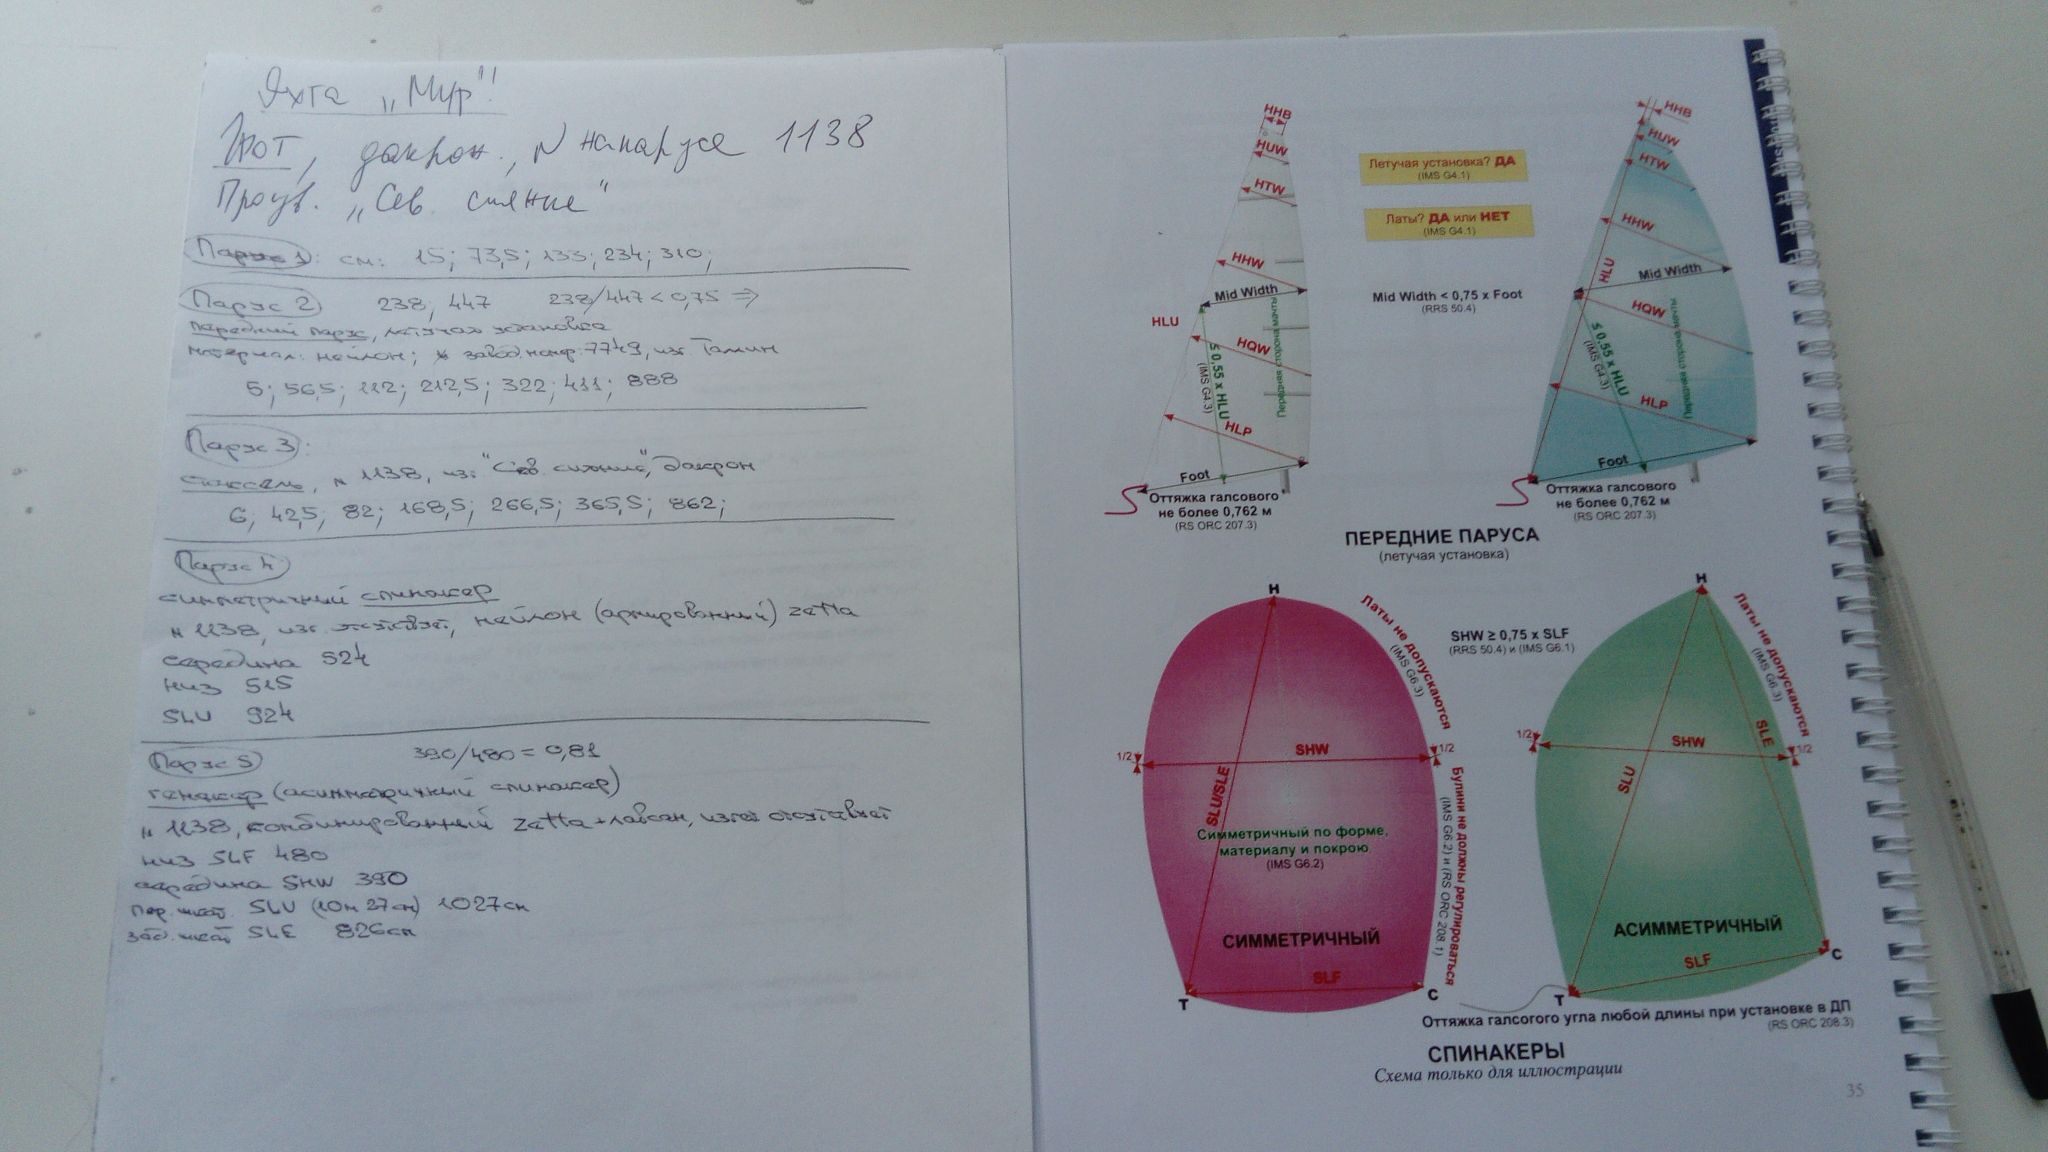 Яхта „Мур"!
Грот, дакрон., N на парусе 1138
Произв. „Сев. сияние"
Парус 1: см: 15; 73,5; 133; 234; 310;
Парус 2 238, 447 238/447 < 0,75 ⇒
передний парус, летучая установка
материал: нейлон; завод. номер. 7749, изг. Тамин
5; 56,5; 112; 212,5; 322; 411; 888
Парус 3:
стаксель, N 1138, изг. "Сев. сияние", дакрон
6; 42,5; 82; 168,5; 266,5; 365,5; 862;
Парус 4
симметричный спинакер
N 1138, изг. отсутствует, нейлон (армированный) zetta
середина 524
низ 515
SLU 924
Парус 5 390/480 = 0,81
генакер (асимметричный спинакер)
N 1138, комбинированный zetta + лавсан, изгот отсутствует
низ SLF 480
середина SHW 390
пер. шкат. SLU (10м 27см) 1027см
зад. шкат SLE 826см
HHB
HUW
HTW
HHW
Mid Width
HLU
HQW
≤ 0,55 x HLU
(IMS G4.3)
Передняя сторона мачты
HLP
Foot
Оттяжка галсового
не более 0,762 м
(RS ORC 207.3)
Летучая установка? ДА
(IMS G4.1)
Латы? ДА или НЕТ
(IMS G4.1)
Mid Width < 0,75 x Foot
(RRS 50.4)
HHB
HUW
HTW
HHW
HLU
Mid Width
HQW
≤ 0,55 x HLU
(IMS G4.3)
Передняя сторона мачты
HLP
Foot
Оттяжка галсового
не более 0,762 м
(RS ORC 207.3)
ПЕРЕДНИЕ ПАРУСА
(летучая установка)
H
Латы не допускаются
(IMS G6.3)
1/2
SHW
1/2
SLU/SLE
Симметричный по форме,
материалу и покрою
(IMS G6.2)
Булини не должны регулироваться
(IMS G6.2) и (RS ORC 208.1)
СИММЕТРИЧНЫЙ
SLF
T
C
SHW ≥ 0,75 x SLF
(RRS 50.4) и (IMS G6.1)
H
Латы не допускаются
(IMS G6.3)
1/2
SHW
SLE
1/2
SLU
АСИММЕТРИЧНЫЙ
SLF
T
C
Оттяжка галсогого угла любой длины при установке в ДП
(RS ORC 208.3)
СПИНАКЕРЫ
Схема только для иллюстрации
35